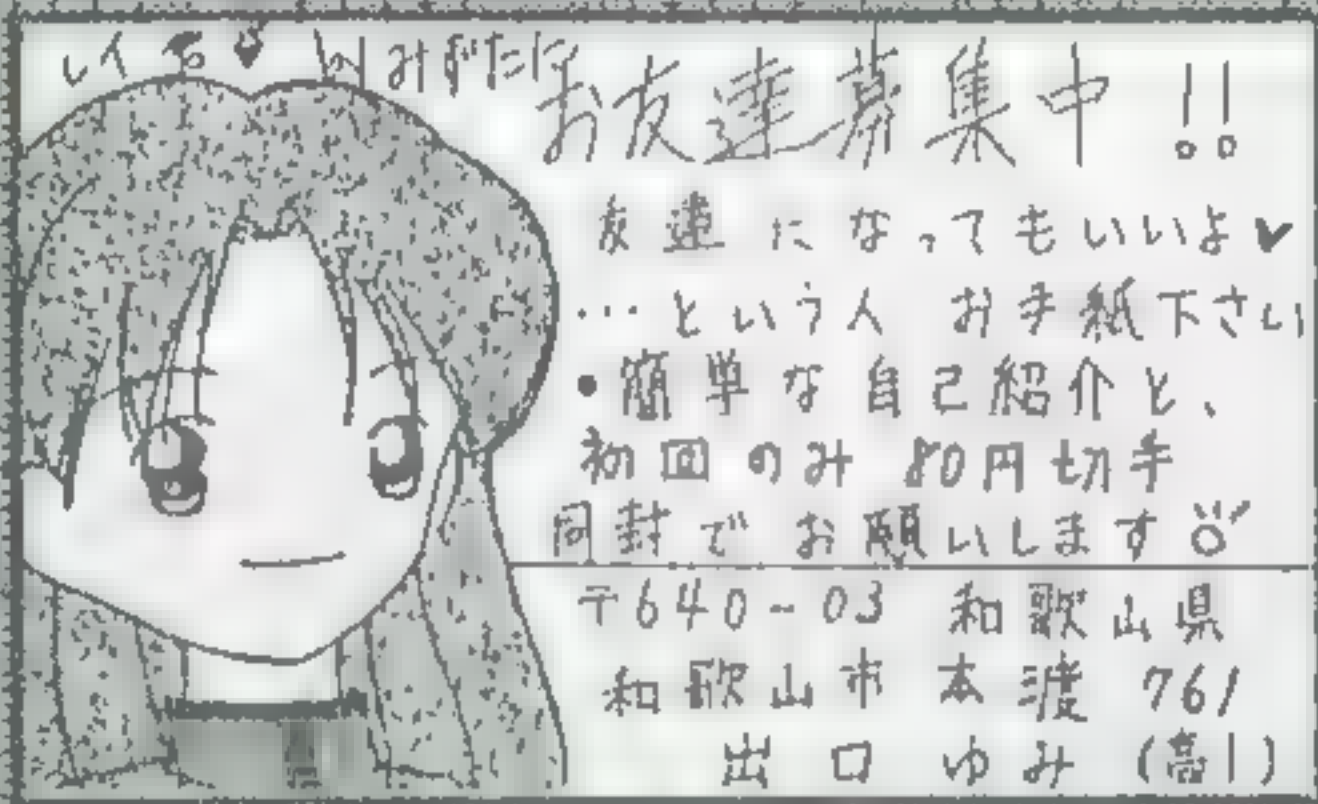 お友達募集中!!
友達になってもいいよ♥
…という人 お手紙下さい
●簡単な自己紹介と、
初回のみ 80円切手
同封でお願いします
〒640-03 和歌山県
和歌山市 本渡 761
出口 ゆみ (高1)